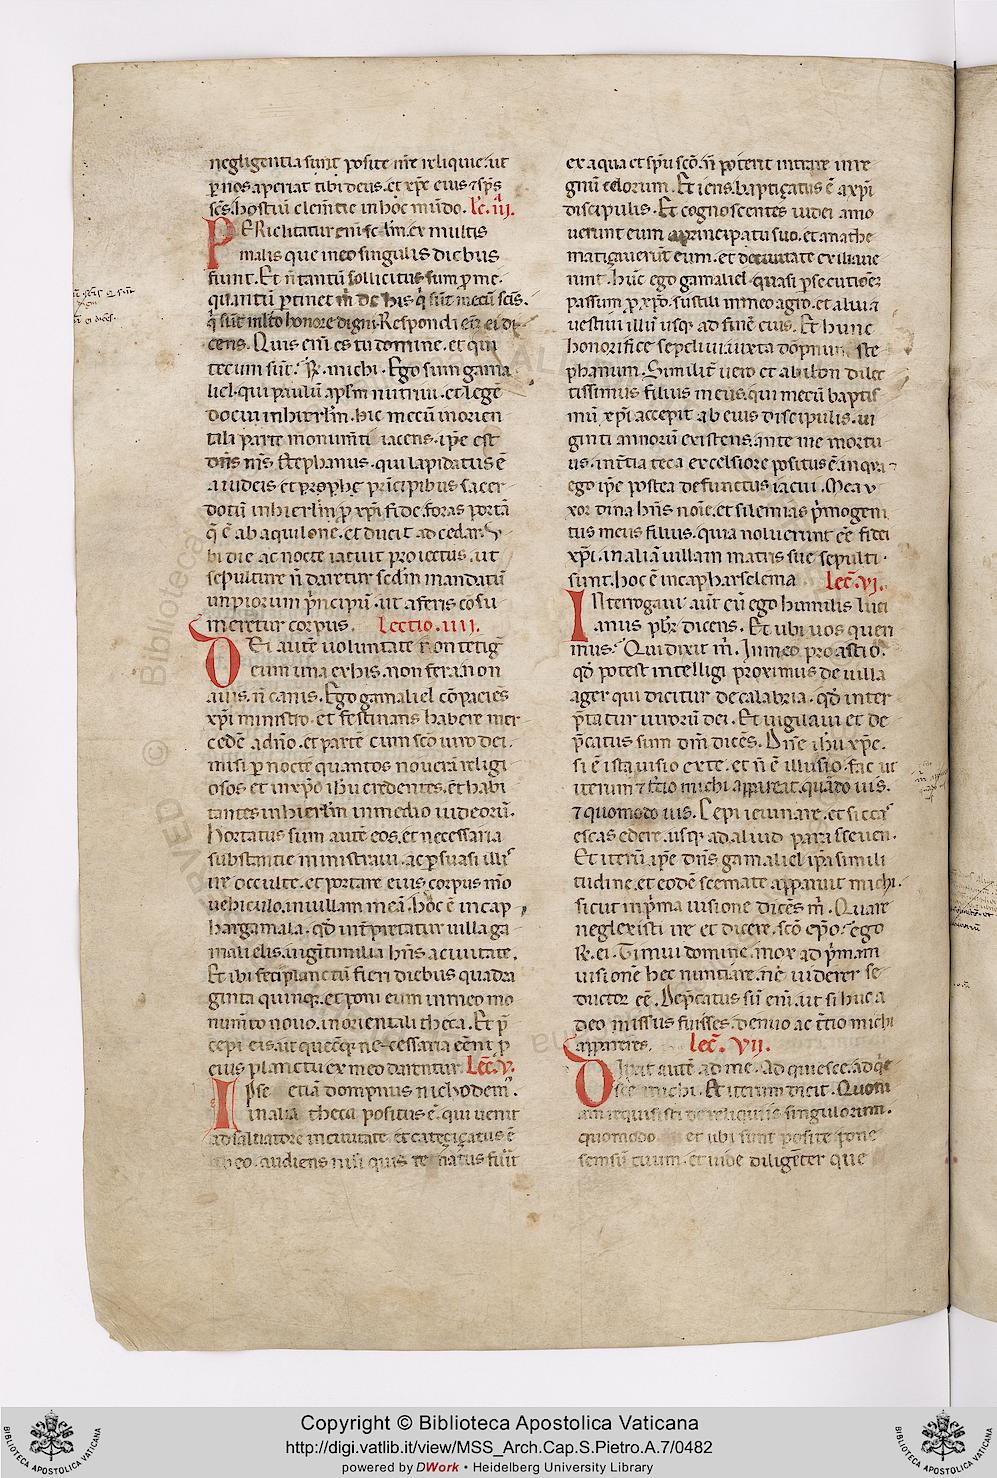 negligentia sunt posite nr̄e reliquie. ut
p nos aperiat tibi deus. et xp̄c eius ⁊ sp̄s
sc̄s. hostiū clem̄tie in hoc mūdo. lc̄. iii.
PERiclitatur eni sclm̄. ex multis
malis que in eo singulis diebus
fiunt. Et n̄ tantū sollicitus sum p me.
quantū p̱tinet m̄ de his q̇ sūt mecū sc̄is.
q̇ sūt mlto honore digni. Respondi ei di
cens. Quis eni es tu domine. et qui
tecum sūt. R̄. michi. Ego sum gama
liel. qui paulū ap̄lm nutriui. et legē
docui in hierlm̄. hic mecū in orien
tali parte monumti iacens. ipē est
dn̄s m̄s stephanus. qui lapidatus ē
a iudeis et principibus sacer
dotū in hierlm̄ p̱ xp̄i fide. foras portā
q̄ ē ab aquilone. et ducit ad cedar. V
bi die ac nocte iacuit proiectus. ut
sepulture n̄ daretur scdm̄ mandatū
impiorum p̄ncipū. ut a feris cosu
meretur corpus. Lectio. iiii.
DEi autē uoluntate non tetig
eum una ex his. non fera. non
auis. n̄ canis. Ego gamaliel cōpaciēs
xp̄i ministro. et festinans habere mer
cedē a dn̄o. et partē cum sc̄o uiro dei.
misi p noctē quantos noueram religi
osos et in xp̄o ihū credentes. et habi
tantes in hierlm̄ in medio iudeorū.
hortatus sum autē eos. et necessaria
substantie ministraui. ac p̱suasi illis
ire occulte. et portare eius corpus m̄o
uehiculo. in uillam meā. hoc ē in cap
hargamala. qd̄ int̄p̱ietatur uilla ga
malielis. uiginti milia hn̄s a ciuitate.
Et ibi feci planctū fieri diebus quadra
ginta quinq;. et poni eum in meo mo
numto nouo. in orientali theca. Et p̄
cepi eis. ut quecūq; necessaria eēnt p
eius planctu ex meo darentur. Lec̄. V.
Ipse etiā dompnus nichodem̄.
in alia theca positus ē. qui uenit
ad saluatorē in ciuitate. et categiçatus ē
audiens nisi quis re natus fuit
ex aqua et sp̄u sc̄o. n̄ poterit intrare in re
gnū celorum. Et iens. baptiçatus ē a xp̄i
discipulis. Et cognoscentes iudei amo
uerunt eum a principatu suo. et anathe
matiçauerūt eum. et de ciuitate exiliaue
runt. hūc ego gamaliel. quasi p̱secutiōes
passum p̱ xp̄o. suscepi in meo agro. et alui. ⁊
uestiui illū usq; ad finē eius. Et hunc
honorifice sepeliui. iuxta dopnum ste
phanum. Similit̄ uero et abibon dilec
tissimus filius meus. qui mecū baptis
mū xp̄i accepit ab eius discipulis. ui
ginti annorū existens. ante me mortu
us. in t̄tia teca excelsiore positus ē. in qua
ego ipē postea defunctus iacui. Mea u
xor dina hn̄s noīe. et silemias p̄mogeni
tus meus filius. quia noluerunt eē fidei
xp̄i. in aliā uillam matris sue sepulti
sunt. hoc ē in capharselema Lec̄. VI.
INterrogaui aūt eū ego humilis luci
anus pbr̄ dicens. Et ubi uos quen
mus. Qui dixit m̄. In meo proastio.
qd̄ potest intelligi proximus de uilla
ager qui dicitur de calabria. qd̄ inter
p̄tatur uirorū dei. Et uigilaui et de
p̄catus sum dm̄ dicēs. Dn̄e ihū xp̄e.
si ē ista uisio ex te. et n̄ ē illusio. fac ut
iterum ⁊ t̄tio michi appareat. quādo uis.
⁊ quomodo uis. Cepi ieiunare. et siccas
escas edere. usq; ad aliud parasseuen.
Et iterū ipē dn̄s gamaliel ip̄a simili
tudine. et eodē scemate apparuit michi.
sicut in p̄ma uisione dicēs m̄. Quare
neglexisti ire et dicere. sc̄o epō. ego
R̄. ei. Timui domine. mox ad p̄mam
uisionē hec nuntiare. ne uiderer se
ductor eē. Dep̄catus sū eni. ut si hic a
deo missus fuisses. denuo ac t̄tio michi
appareres. Lec̄. VII.
Dixit autē ad me. Adquiesce. adq̇e
sce michi. Et iterum dicit. Quoni
am requisisti de reliquiis singulorum.
quomodo et ubi sunt posite. pone
sensū tuum. et uide diligēter que
Copyright © Biblioteca Apostolica Vaticana
http://digi.vatlib.it/view/MSS_Arch.Cap.S.Pietro.A.7/0482
powered by DWork • Heidelberg University Library
BIBLIOTECA APOSTOLICA VATICANA
BIBLIOTECA APOSTOLICA VATICANA